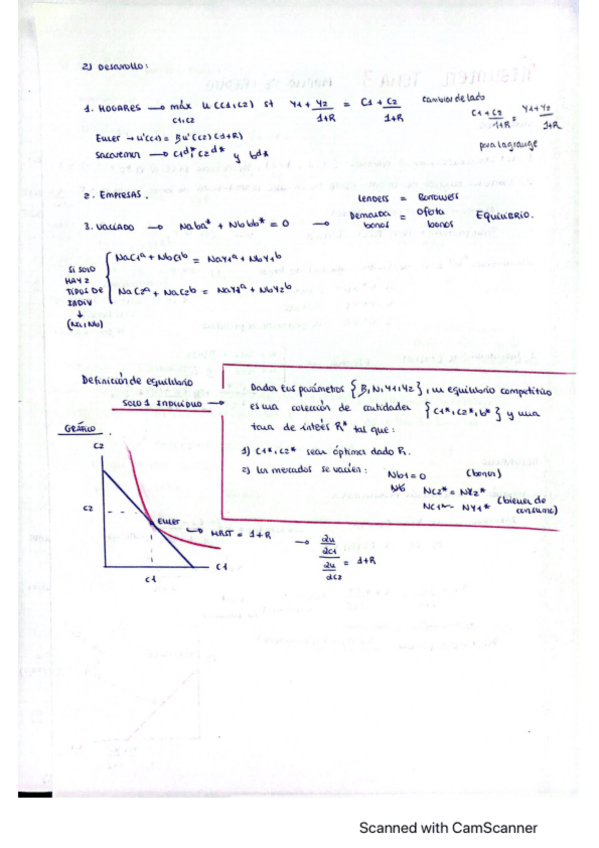 2) Desarrollo:
1. HOGARES → máx U(C1,C2) st Y1 + Y2/1+R = C1 + C2/1+R cambiar de lado C1 + C2/1+R = Y1+Y2/1+R
C1,C2
para Lagrange
Euler → U'(C1) = B U'(C2) (1+R)
Sacaremos → C1d*, C2d* y bd*
2. EMPRESAS.
Lenders = Borrowers
3. VACIADO → Naba* + Nbbb* = 0 → Demanda bonos = Oferta bonos EQUILIBRIO.
SI SOLO HAY 2 TIPOS DE INDIV ↓ (Na, Nb)
NaC1a + NbC1b = NaY1a + NbY1b
NaC2a + NaC2b = NaY2a + NbY2b
Definición de equilibrio
SOLO 1 INDIVIDUO →
Dados tus parámetros {B, N, Y1, Y2}, un equilibrio competitivo
es una colección de cantidades {C1*, C2*, b*} y una
tasa de interés R* tal que:
1) C1*, C2* sean óptimos dado R.
2) Los mercados se vacíen: Nb1 = 0 (bonos)
NC2* = NY2*
NC1* = NY1* (bienes de consumo)
GRÁFICO.
C2
C2
EULER → MRST = 1+R → ∂u/∂C1 / ∂u/∂C2 = 1+R
C1
C1
Scanned with CamScanner